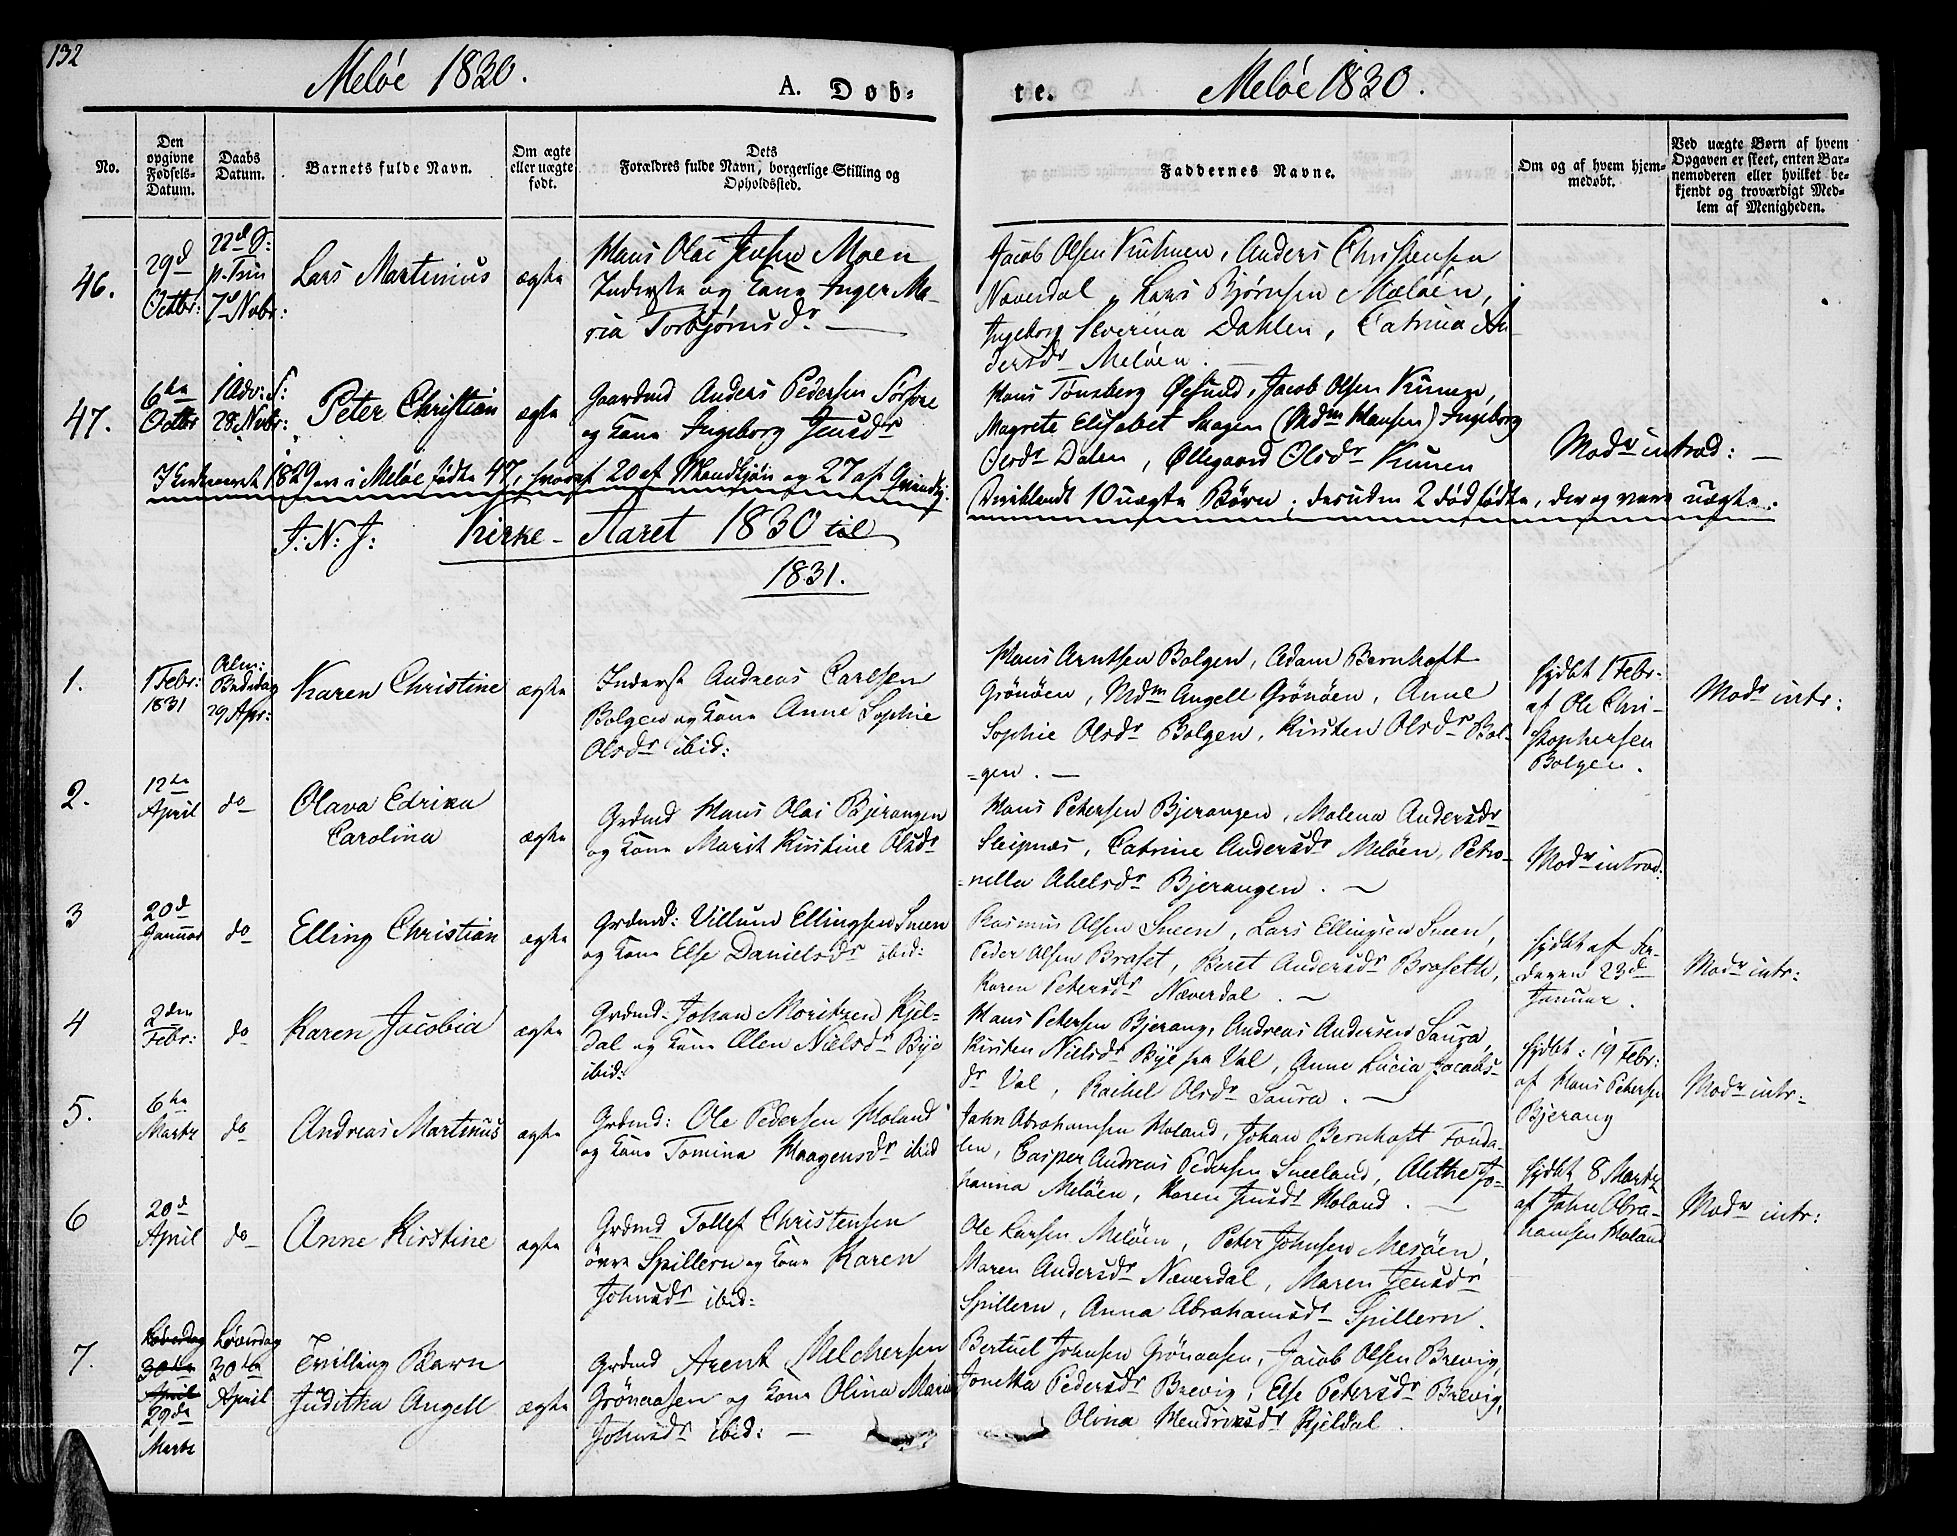 132
Meløe 1830.
A. Døb-
te.
Meløe 1830.
No.
Den opgivne Fødsels-Datum.
Daabs Datum.
Barnets fulde Navn.
Om ægte eller uægte født.
Dets Forældres fulde Navn, borgerlige Stilling og Opholdssted.
Faddernes Navne.
Om og af hvem hjem-
medøbt.
Ved uægte Børn af hvem
Opgaven er skeet, enten Bar-
nemoderen eller hvilket be-
kjendt og troværdigt Med-
lem af Menigheden.
46.
29d
Octbr:
22d S:
p. Trin
7d Novbr:
Lars Martinius
ægte
Hans Olai Jensen Moen
Inderste og Kone Inger Ma-
ria Torbjørnsdr
Jacob Olsen Kunnen, Anders Christensen
Næverdal, Lars Bjørnsen Meløen,
Ingeborg Severina Dahlen, Catrina An-
dersdr Meløen.
47.
6te
Octbr
1 Adv: S:
28 Novbr:
Peter Christian
ægte
Gaardmd Anders Pedersen Sørfore
og Kone Ingeborg Jensdr
Hans Tønsberg Øesund, Jacob Olsen Kunen,
Magrete Elisabet Skagen (Mdm Hansen) Ingeborg
Olsdr Dalen, Øllegaard Olsdr Kunen
Modr introd:
I Kirkeaaret 1829 ere i Meløe fødte 47, hvoraf 20 af Mandkjøn og 27 af Qvindkj:
Iberiblandt 10 uægte Børn; desuden 2 dødfødte, der og vare uægte.
J: N: J: Kirke-Aaret 1830 til
1831.
1.
1 Febr:
1831
Alm:
Bededag
29 Apr:
Karen Christine
ægte
Inderst Andreas Carlsen
Bolgen og Kone Anne Sophie
Olsdr ibid:
Hans Arntsen Bolgen, Adam Bernhoft
Grönöen, Mdm Angell Grönöen, Anne
Sophie Olsdr Bolgen, Kirsten Olsdr Bol-
-gen.
hjdbt 1 Febr:
af Ole Chri-
stophersen
Bolgen.
Modr intr:
2.
12te
April
do
Olava Edrika
Carolina
ægte
Grdmd Hans Olai Bjerangen
og Kone Marit Kirstine Olsdr
Hans Petersen Bjerangen, Malena Andersdr
Sleipnæs, Catrine Andersdr Meløen, Petro-
-nella Abelsdr Bjerangen.
Modr introd:
3
20d
Januar
do
Elling Christian
ægte
Grdmd: Villum Ellingsen Sneen
og Kone Else Danielsdr ibid:
Rasmus Olsen Sneen, Lars Ellingsen Sneen,
Peder Olsen Braset, Beret Andersdr Braseth,
Karen Petersdr Næverdal.
hjdbt af Fa-
deren 23d
Januar.
Modr intr:
4
2den
Febr:
do
Karen Jacobia
ægte
Grdmd: Johan Moritzen Kjel-
dal og Kone Elen Nielsdr Bye
ibid:
Hans Petersen Bjerang, Andreas Andersen Saura,
Kirsten Nielsdr Bye fra Val, Anne Lucia Jacobs-
dr Val, Rachel Olsdr Saura.
hjdbt: 19 Febr:
af Hans Petersen
Bjerang
Modr intr:
5.
6te
Martz
do
Andreas Martinus
ægte
Grdmd: Ole Pedersen Holand
og Kone Tomina Haagensdr ibid
Jahn Abrahamsen Holand, Johan Bernhoft Fonda-
len, Casper Andreas Pedersen Sneeland, Alethe Jo-
hanna Meløen, Karen Jensdr Holand.
hjdbt 8 Martz
af Jahn Abra-
hamsen Holand
Modr intr:
6
20d
April
do
Anne Kirstine
ægte
Grdmd Tollef Christensen
övre Spillern og Kone Karen
Johnsdr ibid:
Ole Larsen Meløen, Peter Johnsen Mesöen,
Maren Andersdr Næverdal, Maren Jensdr
Spillern, Anna Abrahamsdr Spillern.
7.
Løverdag
30te
April
29de
Martz
Løverdag
30te
April
Tvilling Barn
Juditha Angell
ægte
Grdmd Arent Melchersen
Grönaasen og Kone Olina Maria
Johnsdr ibid:
Bertuel Johnsen Grönaasen, Jacob Olsen Brevig,
Jonetta Pedersdr Brevig, Else Petersdr Brevig,
Olina Hendriksdr Kjeldal.